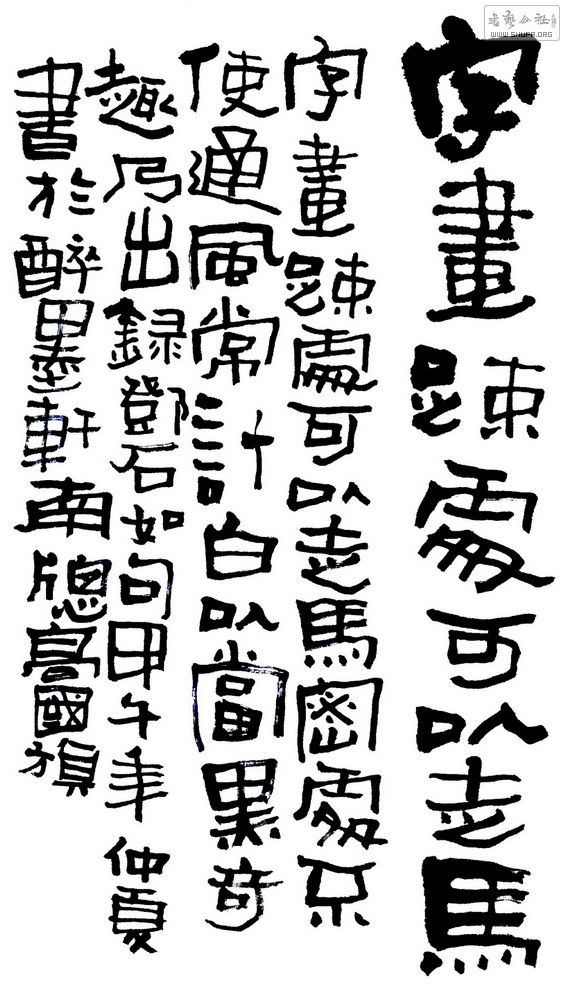 书艺公社
WWW.SHUFA.ORG
字畫踈處可以走馬
字畫踈處可以走馬密處不
使通風常計白以當黑奇
趣乃出録鄧石如句甲午年仲夏
書於醉墨軒南牕高國